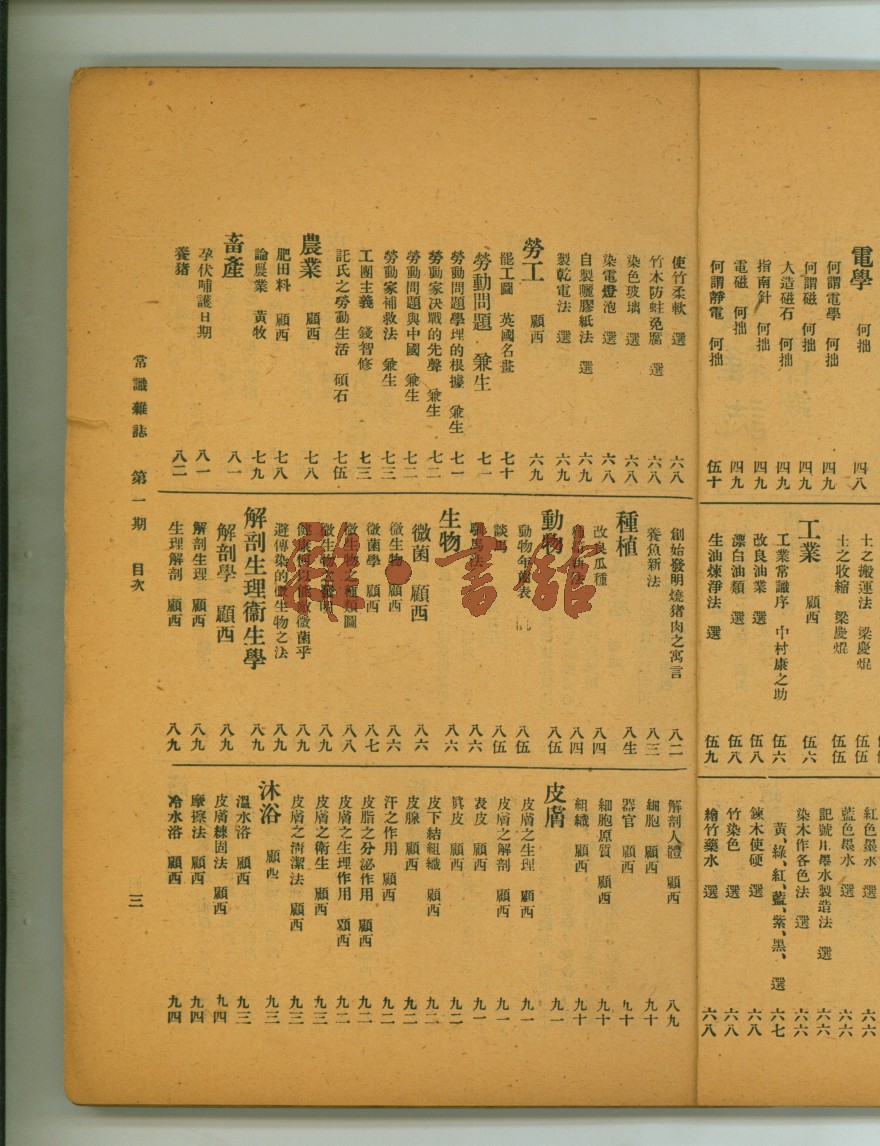 電學 何拙 四八
何謂電學 何拙 四九
何謂磁 何拙 四九
人造磁石 何拙 四九
指南針 何拙 四九
電磁 何拙 四九
何謂靜電 何拙 伍十
土之搬運法 梁慶焜 伍伍
土之收縮 梁慶焜 伍伍
工業 顧西 伍六
工業常識序 中村康之助 伍六
改良油業 選 伍八
漂白油類 選 伍八
生油煉淨法 選 伍九
紅色墨水 選 六六
藍色墨水 選 六六
記號用墨水製造法 選 六六
染木作各色法 選 六六
黃、綠、紅、藍、紫、黑、 選 六七
鍊木使硬 選 六八
竹染色 選 六八
繪竹藥水 選 六八
使竹柔軟 選 六八
竹木防蛀免腐 選 六八
染色玻璃 選 六八
染電燈泡 選 六八
自製曬膠紙法 選 六九
製乾電法 選 六九
勞工 顧西 六九
罷工圖 英國名畫 七十
勞動問題 兼生 七一
勞動問題學理的根據 兼生 七一
勞動家決戰的先聲 兼生 七二
勞動問題與中國 兼生 七二
勞動家補救法 兼生 七三
工團主義 錢智修 七三
託氏之勞動生活 碩石 七伍
農業 顧西 七八
肥田料 顧西 七八
論農業 黃牧 七九
畜產 八一
孕伏哺護日期 八一
養猪 八二
創始發明燒猪肉之寓言 八二
養魚新法 八三
種植 八生
改良瓜種 八四
新法 八四
動物 八伍
動物年齡表 八伍
談馬 八伍
馬法 八六
生物 八六
微菌 顧西 八六
微生物 顧西 八六
微菌學 顧西 八七
微生物之種類圖 八八
微生物之 八九
微菌乎 八九
避傳染的微生物之法 八九
解剖生理衞生學 八九
解剖學 顧西 八九
解剖生理 顧西 八九
生理解剖 顧西 八九
解剖人體 顧西 八九
細胞 顧西 九十
器官 顧西 九十
細胞原質 顧西 九十
組織 顧西 九十
皮膚 九一
皮膚之生理 顧西 九一
皮膚之解剖 顧西 九一
表皮 顧西 九一
眞皮 顧西 九二
皮下結組織 顧西 九二
皮腺 顧西 九二
汗之作用 顧西 九二
皮脂之分泌作用 顧西 九二
皮膚之生理作用 顧西 九二
皮膚之衛生 顧西 九三
皮膚之清潔法 顧西 九三
沐浴 顧西 九三
溫水浴 顧西 九三
皮膚練固法 顧西 九四
摩擦法 顧西 九四
冷水浴 顧西 九四
常識雜誌 第一期 目次
三